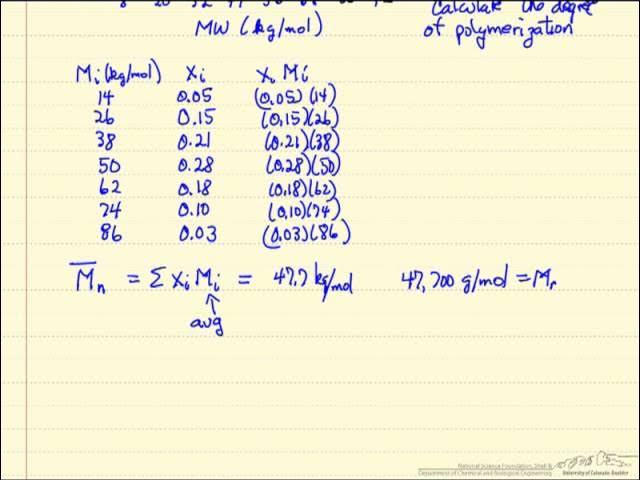 Calculate the degree
MW (kg/mol)
of polymerization
Mi (kg/mol) Xi Xi Mi
14 0.05 (0.05)(14)
26 0.15 (0.15)(26)
38 0.21 (0.21)(38)
50 0.28 (0.28)(50)
62 0.18 (0.18)(62)
74 0.10 (0.10)(74)
86 0.03 (0.03)(86)
M̅n = Σ Xi Mi = 47.7 kg/mol 47,700 g/mol = Mn
↑
avg
National Science Foundation, Shell &
Department of Chemical and Biological Engineering
University of Colorado Boulder